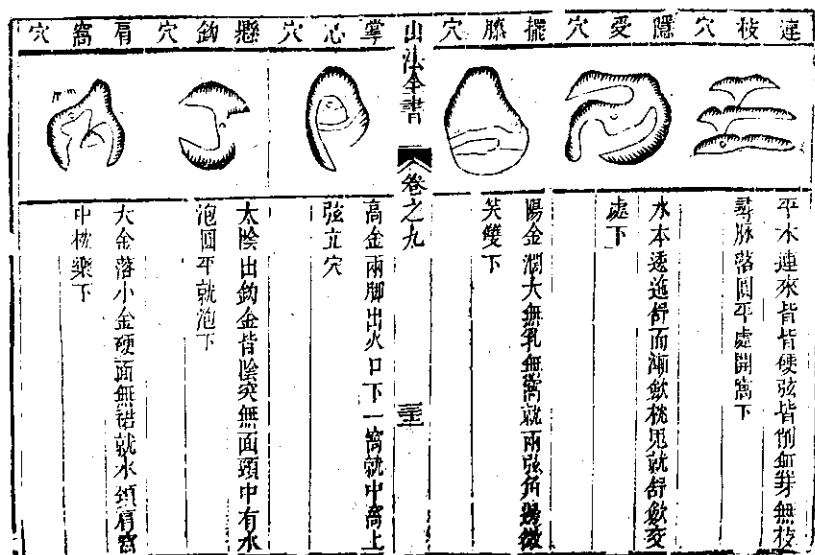 連枝穴
平木連來皆皆硬弦皆削無芽無枝
尋脉落圓平處開窩下
隱受穴
水本逶迤舒而漸歛桃兜就舒歛交
處下
擺膝穴
陽金濶大無乳無窩就兩弦角㡬微
芙雙下
山法全書
卷之九
三十三
掌心穴
高金兩脚出火口下一窩就中窩上
弦立穴
懸鈎穴
太陰出鈎金皆陰突無面頭中有水
泡圓平就泡下
肩窩穴
大金落小金硬面無裙就水頭肩窩
中枕樂下